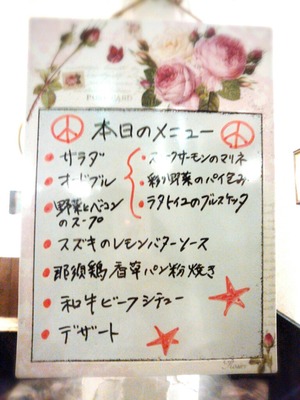 POST CARD
本日のメニュー
サラダ
オードブル
・スモークサーモンのマリネ
・彩り野菜のパイ包み
・ラタトイユのブルスケッタ
野菜とベーコン
のスープ
スズキのレモンバターソース
那須鶏香草パン粉焼き
和牛ビーフシチュー
デザート